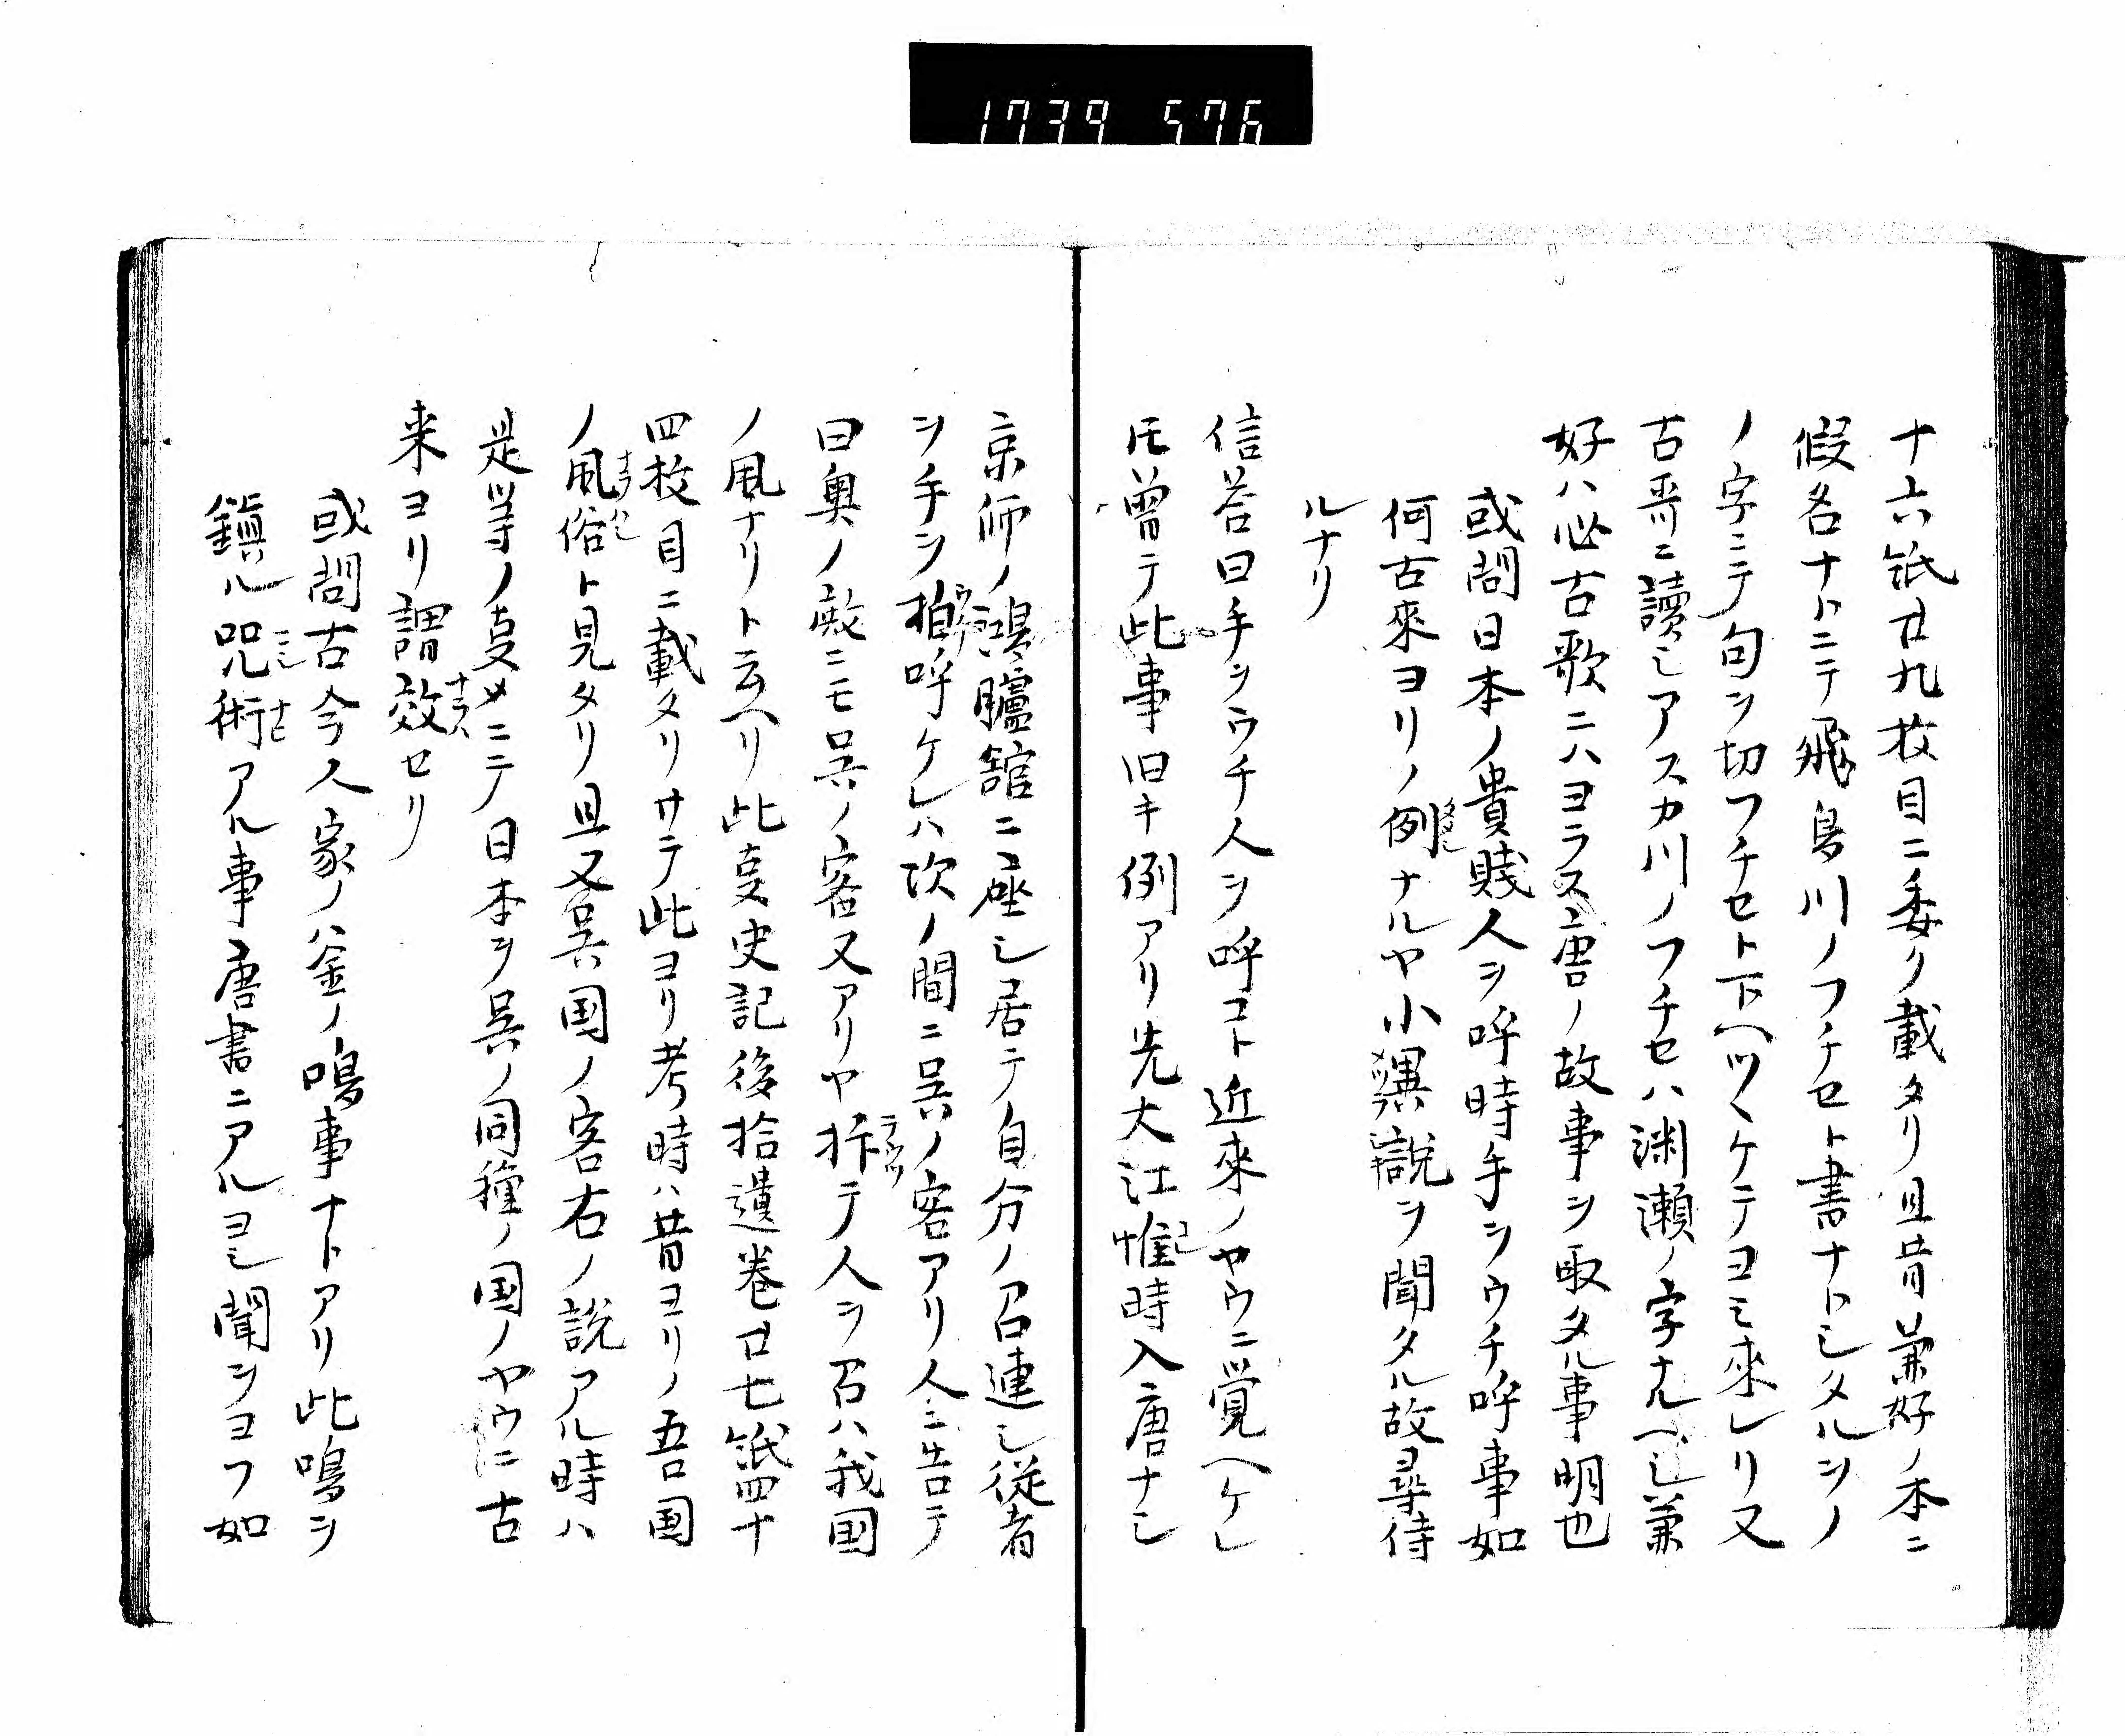 1739 576
十六紙廿九枚目ニ委ク載タリ且昔兼好ノ本ニ
假名ナトニテ飛鳥川ノフチセト書ナトシタルヲノ
ノ字ニテ句ヲ切フチセト下ヘツヽケテヨミ來レリ又
古哥ニ讀シアスカ川ノフチセハ渊瀬ノ字ナルヘシ兼
好ハ必古歌ニハヨラス唐ノ故事ヲ取タル事明也
或問日本ノ貴賤人ヲ呼時手ヲウチ呼事如
何古來ヨリノ例ナルヤ小異說ヲ聞タル故尋侍
ルナリ
信荅曰手ヲウチ人ヲ呼コト近來ノヤウニ覚ヘケレ
圧曽テ此事旧キ例アリ先大江惟時入唐ナシ
京师ノ鴻臚舘ニ座シ居テ自分ノ召連シ従者
ヲ手ヲ拍呼ケレハ次ノ間ニ吴ノ客アリ人ニ告テ
曰奥ノ殿ニモ吴ノ客又アリヤ拆テ人ヲ召ハ我国
ノ風ナリト云ヘリ此叓史記後拾遺巻廿七紙四十
四枚目ニ載タリサテ此ヨリ考時ハ昔ヨリノ吾国
ノ風俗ト見タリ且又吴国ノ客右ノ説アル時ハ
是等ノ叓メニテ日本ヲ吴ノ同種ノ国ノヤウニ古
来ヨリ謂效セリ
或問古今人家ノ釜ノ鳴事ナトアリ此鳴ヲ
鎭ル咒術アル事唐書ニアルヨシ聞ヲヨフ如